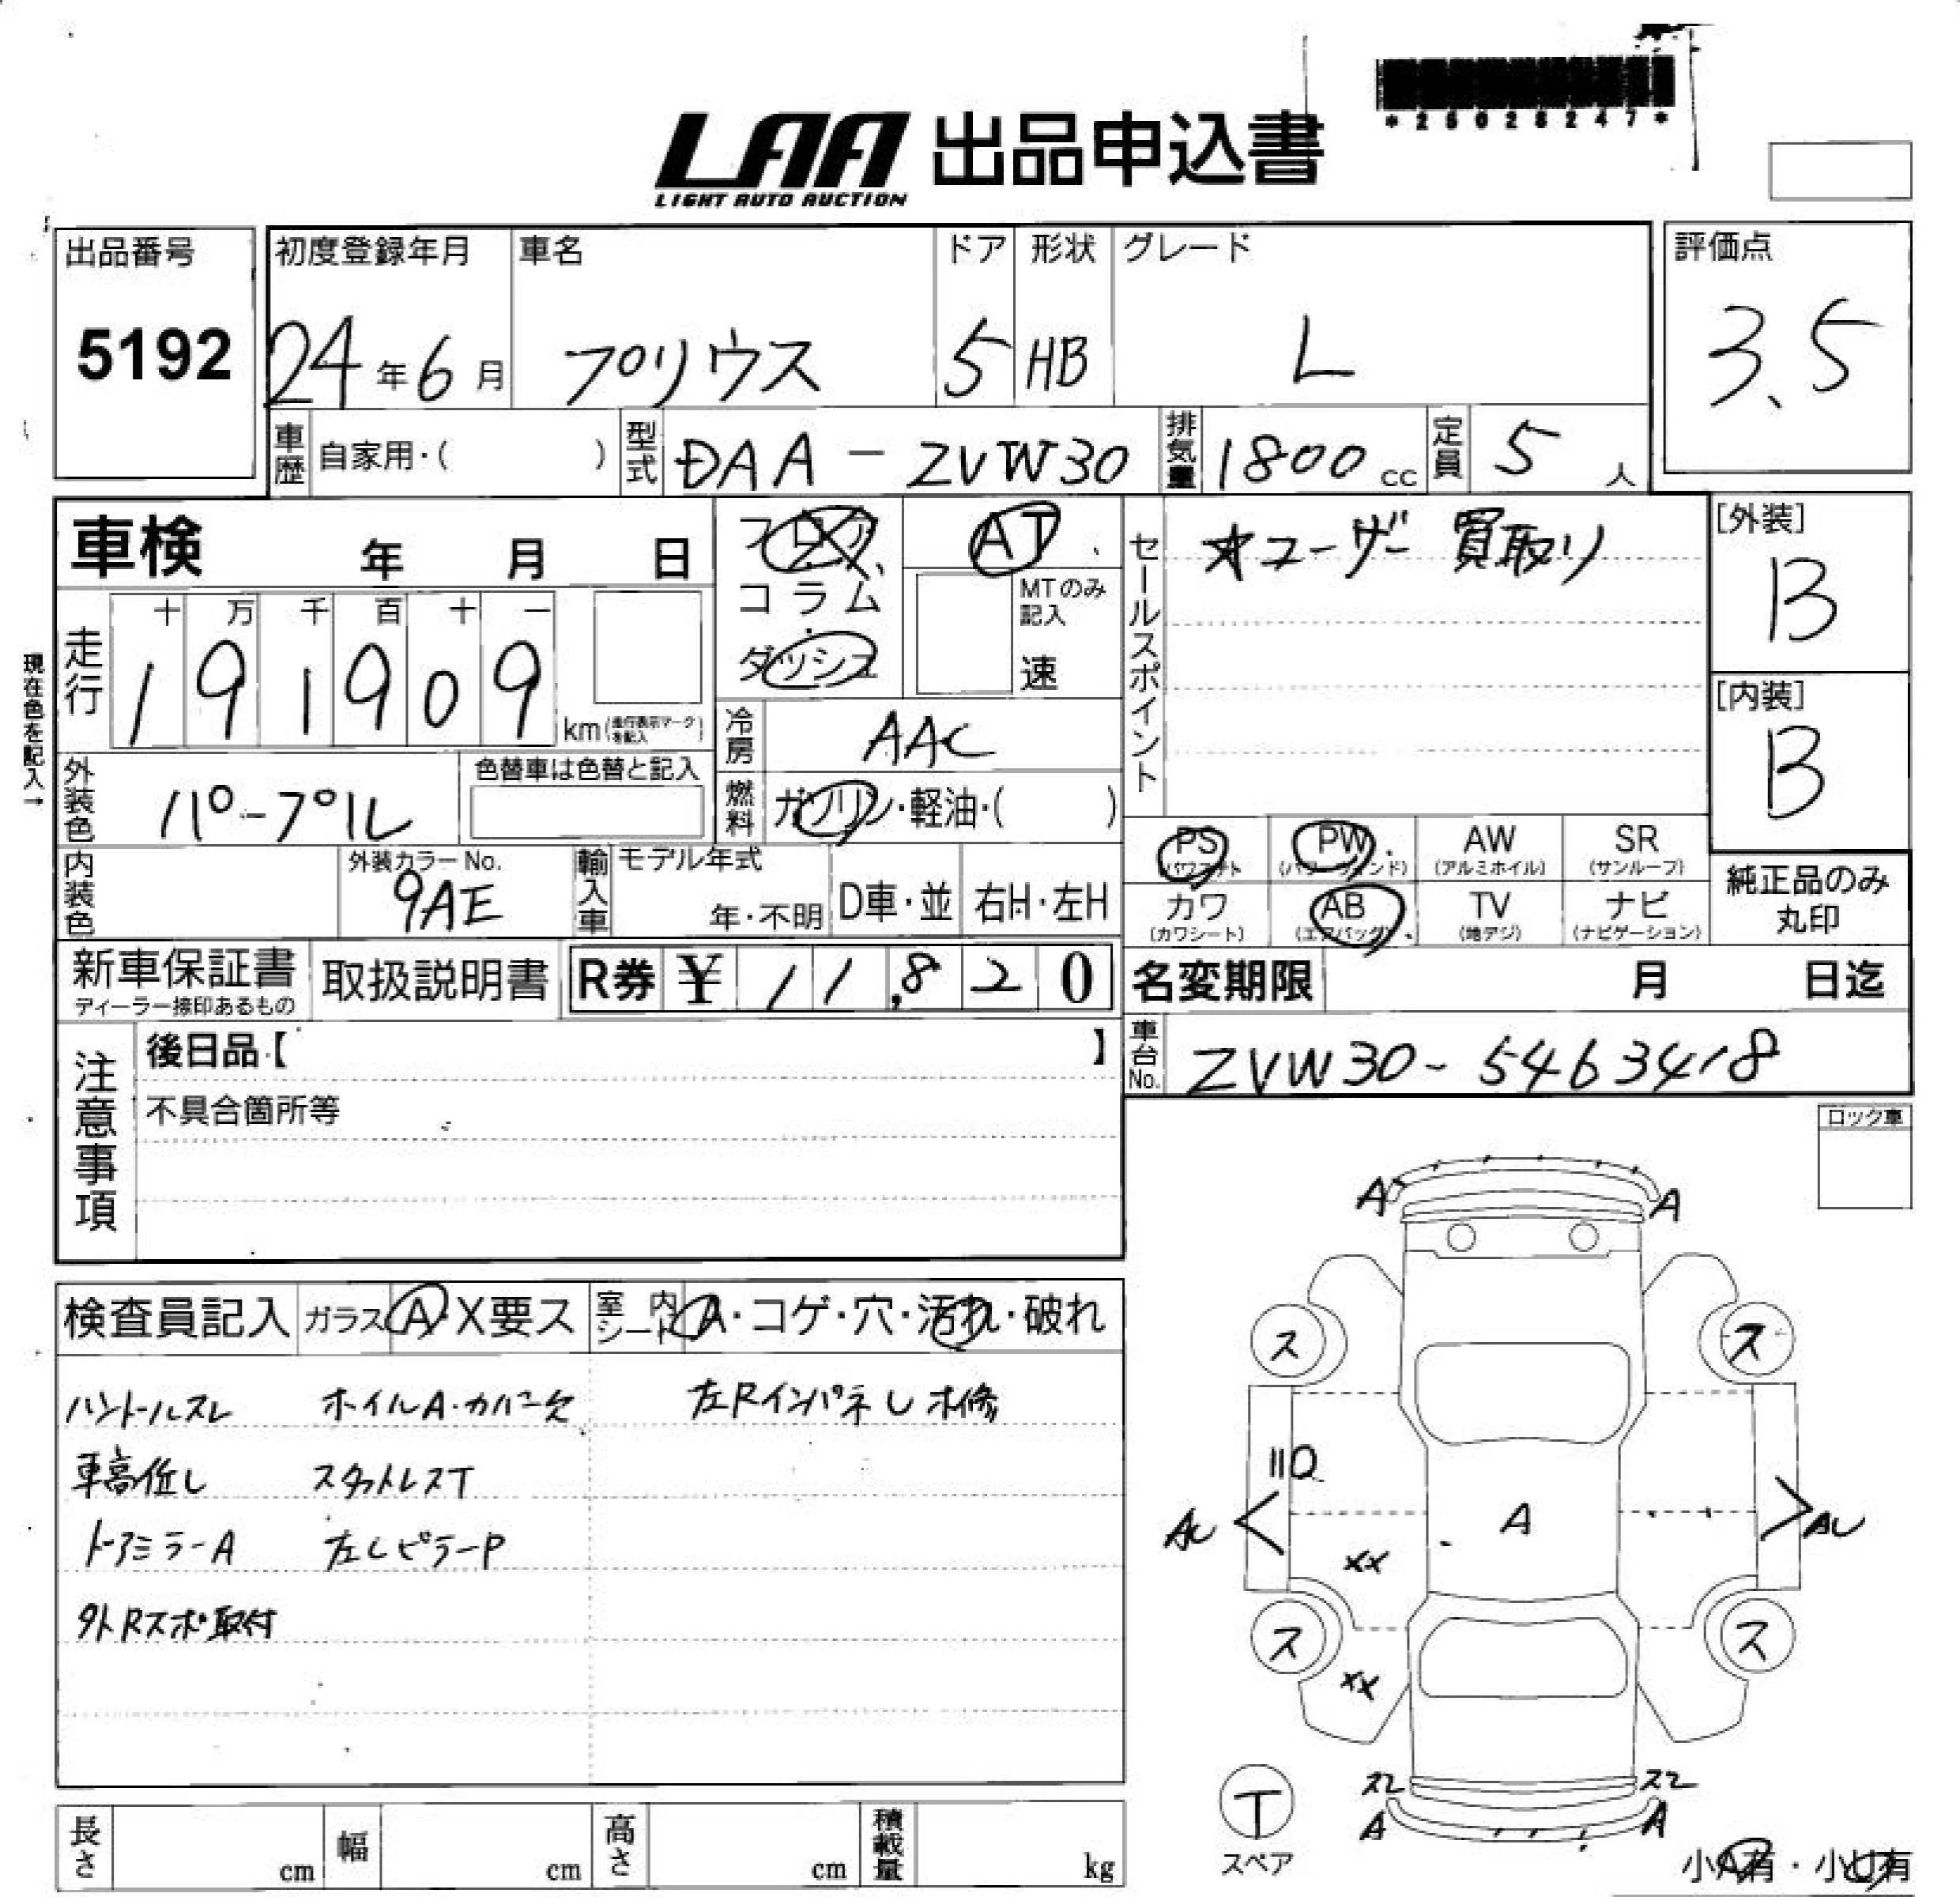 *25028247*
LAA 出品申込書
LIGHT AUTO AUCTION
出品番号
5192
初度登録年月
24年6月
車名
プリウス
ドア
5
形状
HB
グレード
L
評価点
3.5
車歴 自家用・( )
型式 DAA-ZVW30
排気量 1800cc
定員 5人
車検 年 月 日
フロア
コラム
ダッシュ
AT
MTのみ記入
速
セールスポイント
★ユーザー買取り
[外装]
B
[内装]
B
現在色を記入→
走行
十 万 千 百 十 一
191909
km(走行表示マークを記入)
冷房 AAC
外装色 パープル
色替車は色替と記入
燃料 ガソリン・軽油・( )
内装色
外装カラーNo.
9AE
輸入車
モデル年式
年・不明
D車・並
右H・左H
PS
(パワステ)
PW
(パワーウィンド)
AW
(アルミホイル)
SR
(サンルーフ)
カワ
(カワシート)
AB
(エアバッグ)
TV
(地デジ)
ナビ
(ナビゲーション)
純正品のみ
丸印
新車保証書
ディーラー捺印あるもの
取扱説明書
R券 ¥ 11,820
名変期限 月 日迄
車台No. ZVW30-5463418
注意事項
後日品【 】
不具合箇所等
ロック車
検査員記入
ガラス A・X要ス
室内シート A・コゲ・穴・汚れ・破れ
ハンドルスレ
ホイルA・カバー欠
左Rインパネし補修
車高低し
スタットレスT
ドアミラーA
左CピラーP
外Rスポ取付
A
A
ス
ス
AU
AU
A
XX
XX
ス
ス
スレ
スレ
A
A
T
スペア
小A有・小U有
長さ cm
幅 cm
高さ cm
積載量 kg